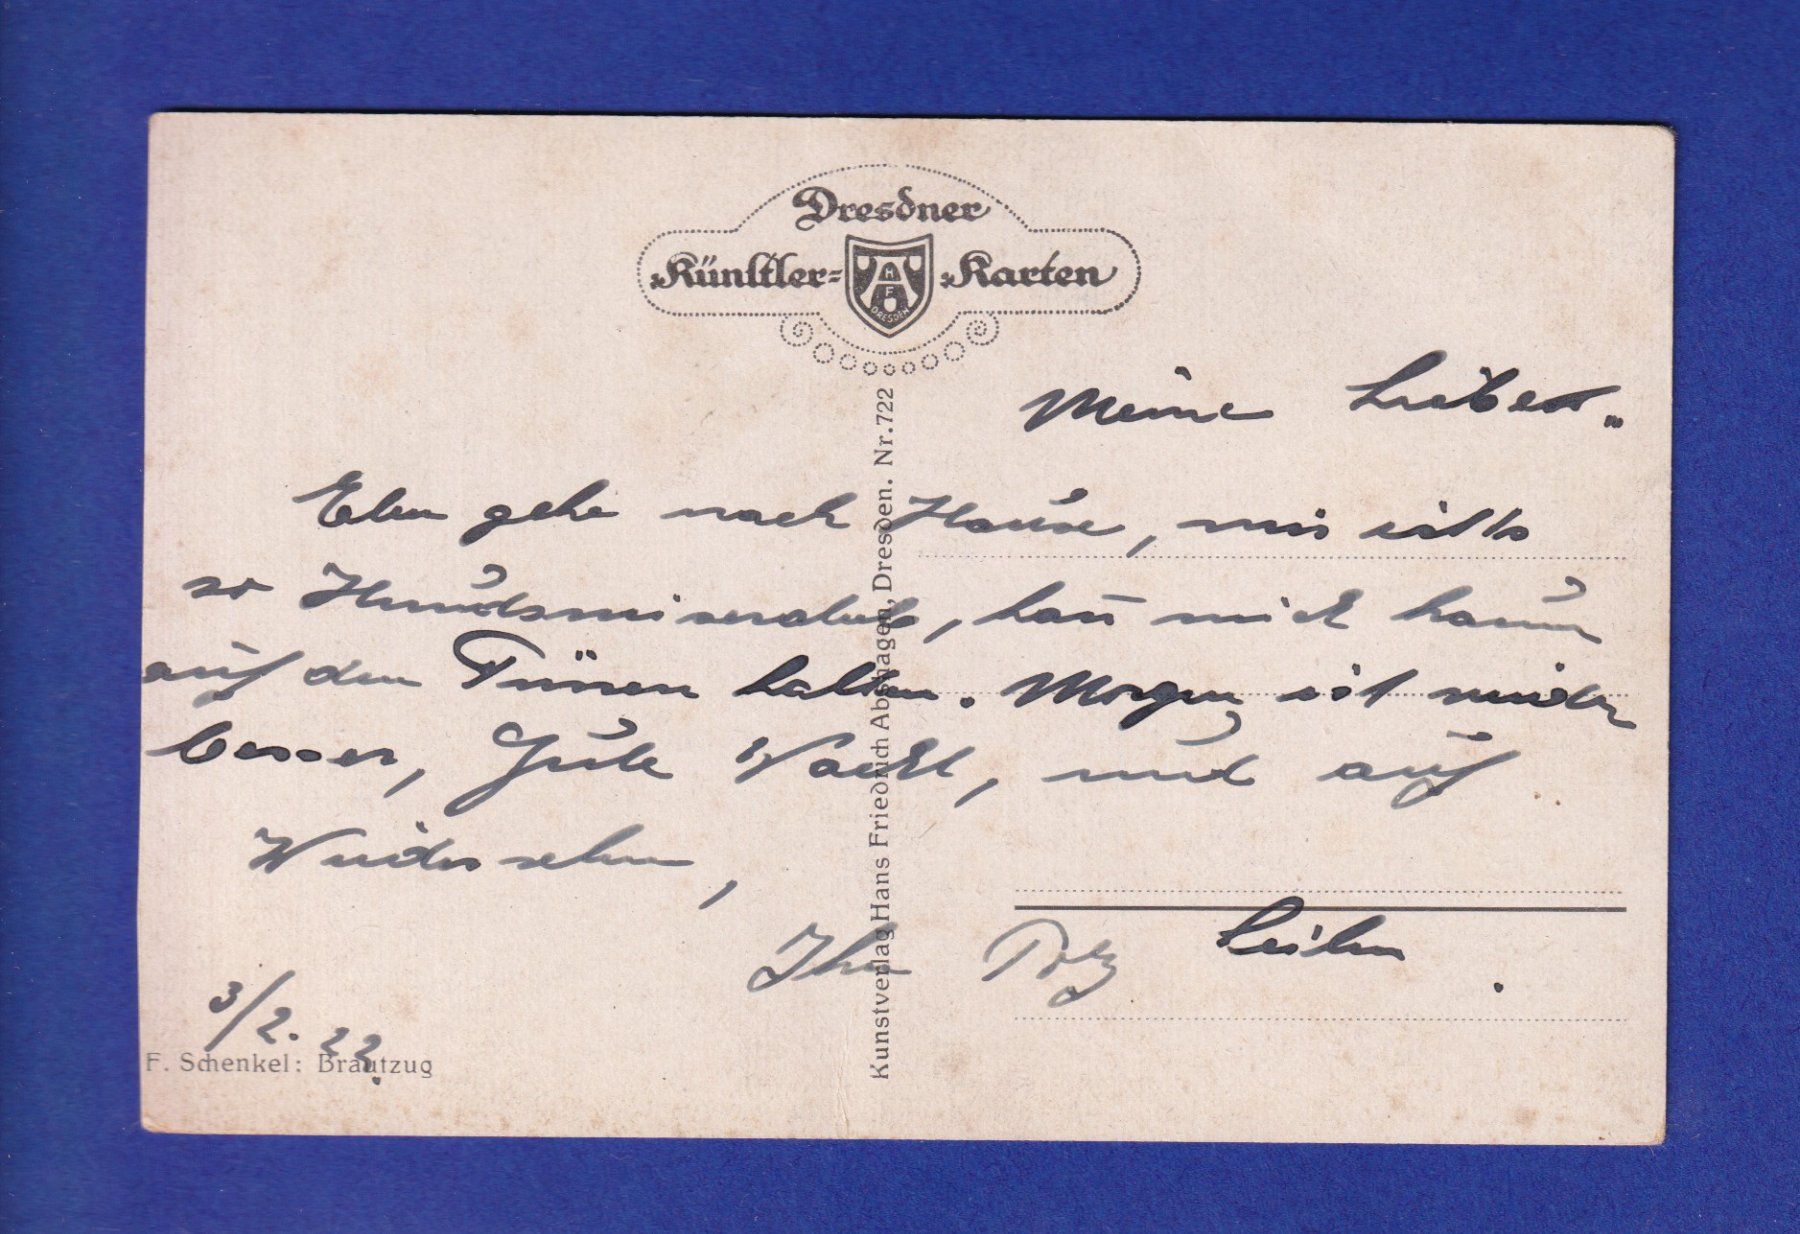 Dresdner
Künstler- Karten
H
F
DRESDEN
Meine Lieben.
Eben gehe nach Hause, mir ist's
so Hundsmiserabel, kann mich kaum
auf den Füssen halten. Morgen ist wieder
besser, Gute Nacht, und auf
Wiedersehen,
Ihr
3/2. 22.
F. Schenkel: Brautzug
Kunstverlag Hans Friedrich Abshagen, Dresden. Nr. 722